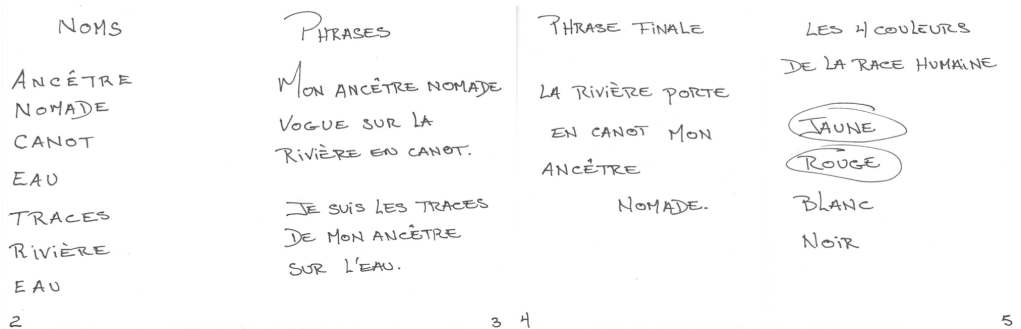 NOMS
ANCÊTRE
NOMADE
CANOT
EAU
TRACES
RIVIÈRE
EAU
2
PHRASES
MON ANCÊTRE NOMADE
VOGUE SUR LA
RIVIÈRE EN CANOT.
JE SUIS LES TRACES
DE MON ANCÊTRE
SUR L'EAU.
3
PHRASE FINALE
LA RIVIÈRE PORTE
EN CANOT MON
ANCÊTRE
NOMADE.
4
LES 4 COULEURS
DE LA RACE HUMAINE
JAUNE
ROUGE
BLANC
NOIR
5